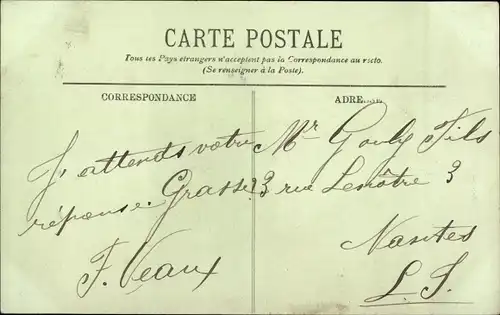 CARTE POSTALE
Tous les Pays étrangers n'acceptent pas la Correspondance au recto.
(Se renseigner à la Poste).
CORRESPONDANCE
J'attends votre
réponse. Grasse
F. Veaux
ADRESSE
Mr Gouly Fils
3 rue Lenôtre 3
Nantes
L. I.